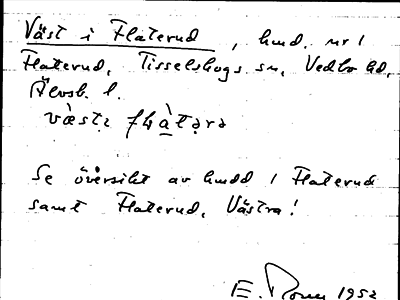 Väst i Flaterud, hmd. nr 1
Flaterud, Tisselskogs sn, Vedbo hd,
Älvsb. l.
Se översikt av hmdd i Flaterud
samt Flaterud, Västra!
E. 1952